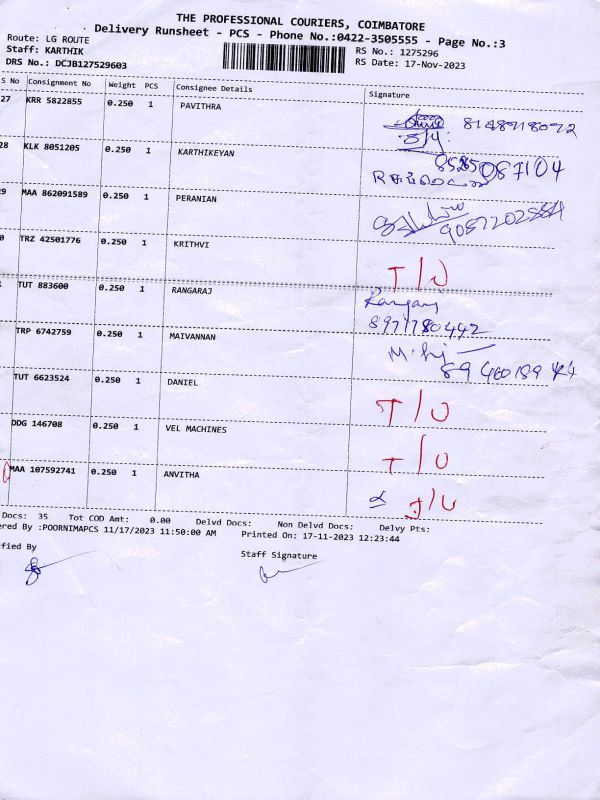 THE PROFESSIONAL COURIERS, COIMBATORE
Delivery Runsheet - PCS - Phone No.:0422-3505555 - Page No.:3
Route: LG ROUTE
Staff: KARTHIK RS No.: 1275296
DRS No.: DCJB127529603 RS Date: 17-Nov-2023
S No Consignment No Weight PCS Consignee Details Signature
27 KRR 5822855 0.250 1 PAVITHRA
28 KLK 8051205 0.250 1 KARTHIKEYAN
9 MAA 862091589 0.250 1 PERANIAN
0 TRZ 42501776 0.250 1 KRITHVI T/U
1 TUT 883600 0.250 1 RANGARAJ
8971780442
TRP 6742759 0.250 1 MAIVANNAN
TUT 6623524 0.250 1 DANIEL T/U
DDG 146708 0.250 1 VEL MACHINES T/U
MAA 107592741 0.250 1 ANVITHA T/U
Docs: 35 Tot COD Amt: 0.00 Delvd Docs: Non Delvd Docs: Delvy Pts:
ered By :POORNIMAPCS 11/17/2023 11:50:00 AM Printed On: 17-11-2023 12:23:44
ified By Staff Signature